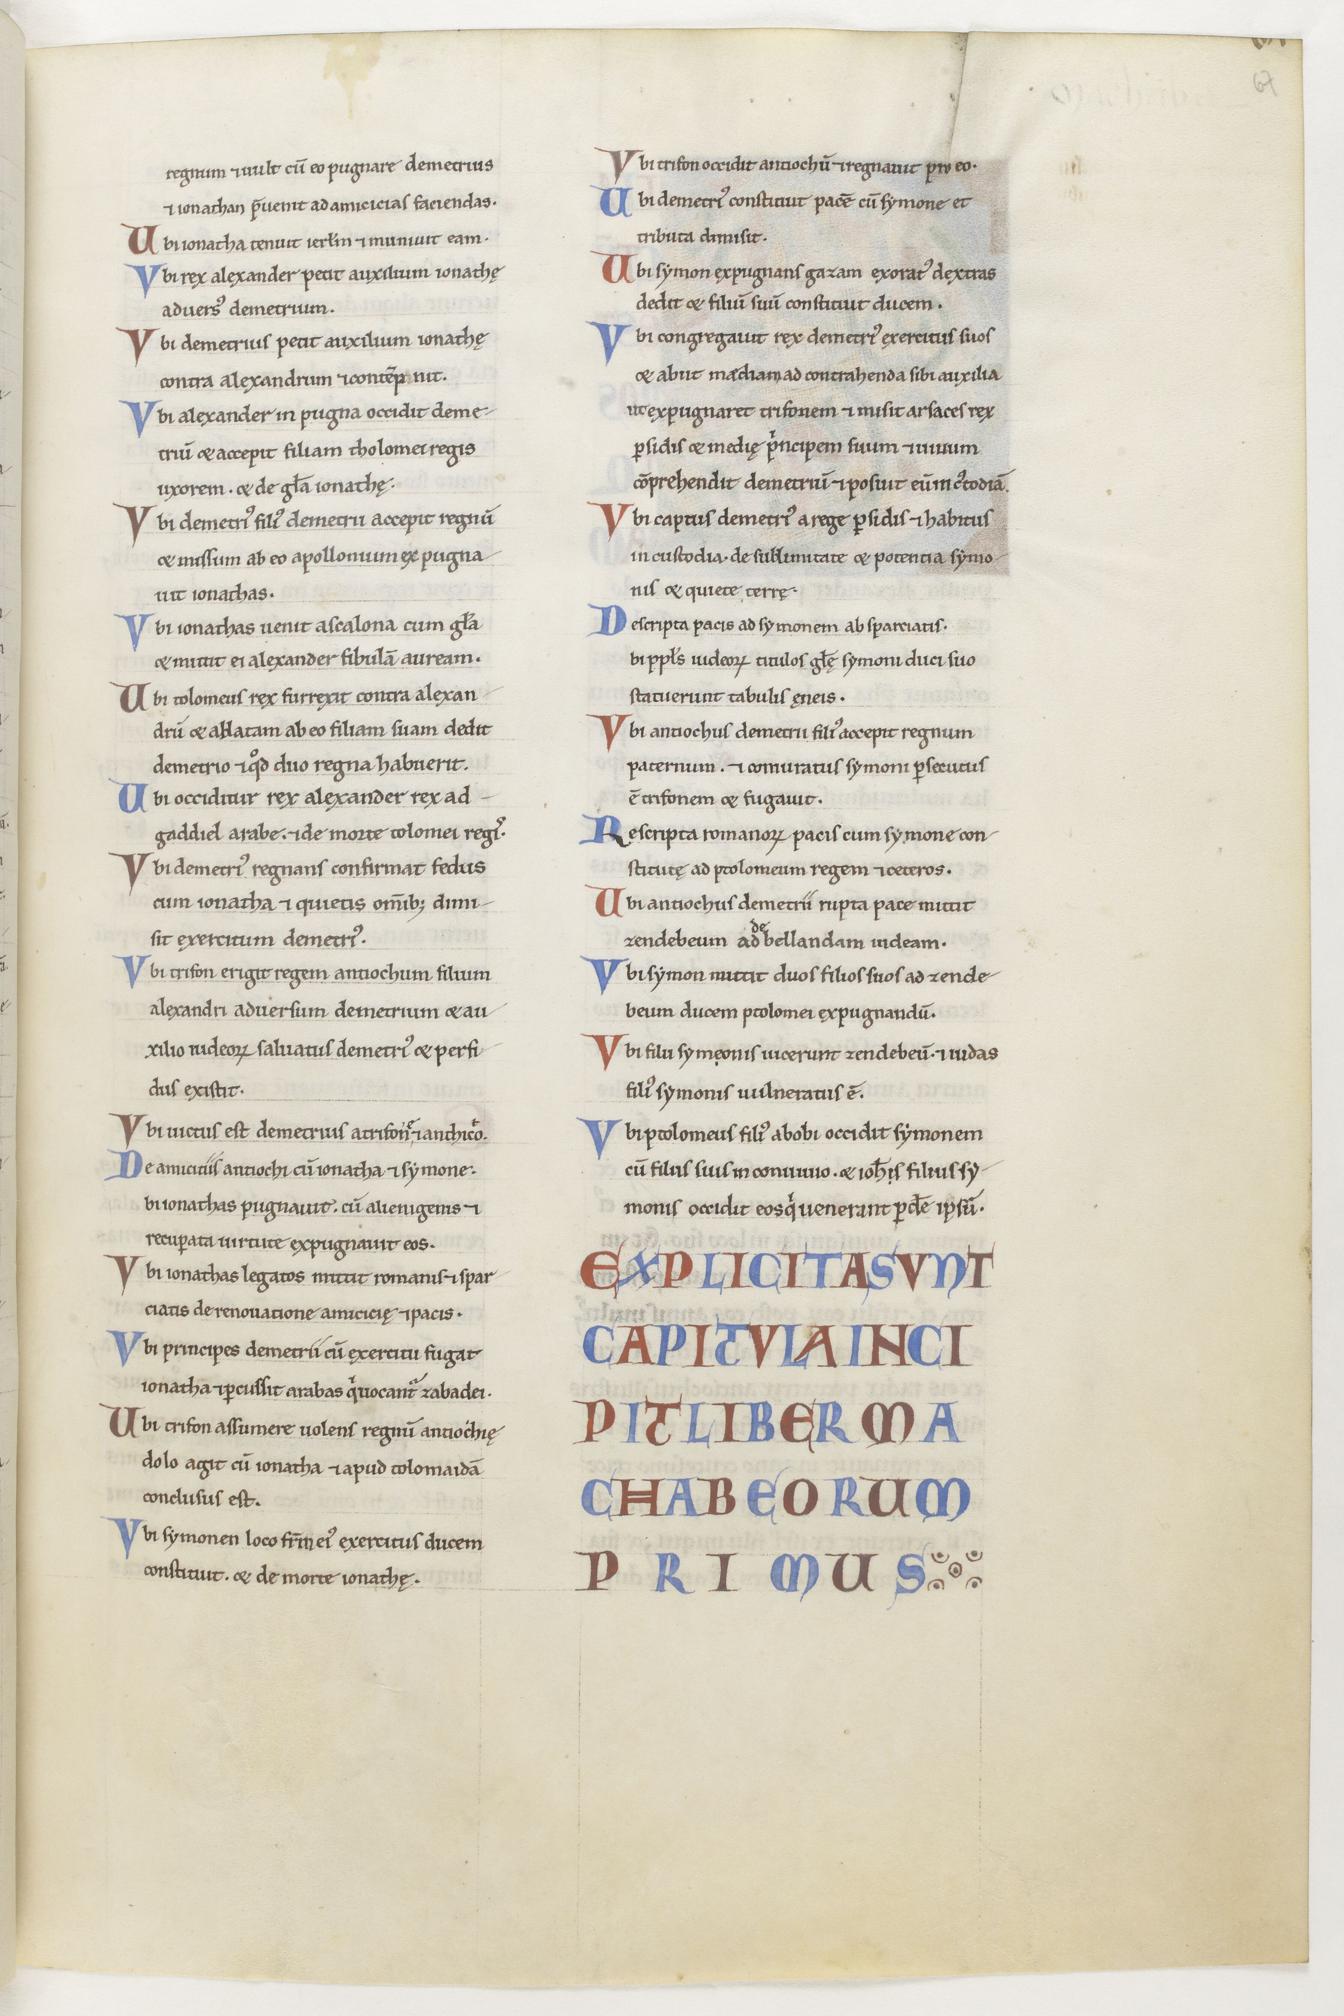 regnum ⁊ uult cū eo pugnare demetrius
⁊ ionathan p̄uenit ad amicicias faciendas.
Ubi ionatha tenuit ierl̄m ⁊ muniuit eam.
Vbi rex alexander petit auxilium ionathę
aduersꝰ demetrium.
Vbi demetrius petit auxilium ionathę
contra alexandrum ⁊ contēpnit.
Vbi alexander in pugna occidit deme-
triū & accepit filiam tholomei regis
uxorem. & de gl̄a ionathę.
Vbi demetriꝰ filiꝰ demetrii accepit regnū
& missum ab eo apollonium expugna
uit ionathas.
Vbi ionathas uenit ascalona cum gl̄a
& mittit ei alexander fibulā auream.
Ubi tolomeus rex surrexit contra alexan
drū & ablatam ab eo filiam suam dedit
demetrio ⁊ qd̄ duo regna habuerit.
Ubi occiditur rex alexander rex ad
gaddiel arabe. ⁊ de morte tolomei regiꝰ.
Vbi demetriꝰ regnans confirmat fedus
cum ionatha ⁊ quietis om̄ib; dimi-
sit exercitum demetriꝰ.
Vbi trifon erigit regem antiochum filium
alexandri aduersum demetrium & au
xilio iudeoꝝ saluatus demetriꝰ & perfi
dus existit.
Vbi uictus est demetrius a trifone ⁊ anthico.
De amiciciis antiochi cū ionatha ⁊ symone.
bi ionathas pugnauit. cū alienigenis ⁊
recuperata uirtute expugnauit eos.
Vbi ionathas legatos mittit romanis ⁊ spar
ciatis de renouatione amicicię ⁊ pacis.
Vbi principes demetrii cū exercitu fugat
ionatha ⁊ ꝑcussit arabas qͥ uocantᷣ zabadei.
Ubi trifon assumere uolens regnū antiochię
dolo agit cū ionatha ⁊ apud tolomaidā
conclusus est.
Vbi symonen loco fr̄m eiꝰ exercitus ducem
constituit. & de morte ionathę.
Vbi trifon occidit antiochū ⁊ regnauit pro eo.
Ubi demetriꝰ constituit pacē cū symone et
tributa dimisit.
Ubi symon expugnans gazam exoratꝰ dextras
dedit & filiū suū constituit ducem.
Vbi congregauit rex demetriꝰ exercitus suos
& abiit mediam ad contrahenda sibi auxilia
ut expugnaret trifonem ⁊ misit arsaces rex
ꝑsidis & medię pͥncipem suum ⁊ uiuum
cōprehendit demetriū ⁊ posuit eū in cꝰtodiā.
Vbi captus demetriꝰ a rege ꝑsidis ⁊ habitus
in custodia. de sublimitate & potentia symo-
nis & quiete terrę.
Descripta pacis ad symonem ab sparciatis.
bi ppl̄s iudeoꝝ titulos gl̄ę symoni duci suo
statuerunt tabulis ęneis.
Vbi antiochus demetrii filiꝰ accepit regnum
paternum. ⁊ comuratus symoni ꝑsecutus
ē trifonem & fugauit.
Rescripta romanoꝝ pacis cum symone con-
stitutę ad ptolomeum regem ⁊ ceteros.
Ubi antiochus demetrii rupta pace mittit
zendebeum ad debellandam iudeam.
Vbi symon mittit duos filios suos ad zende-
beum ducem ptolomei expugnandū.
Vbi filii symeonis uicerunt zendebeū. ⁊ iudas
filiꝰ symonis uulneratus ē.
Vbi ptolomeus filiꝰ abobi occidit symonem
cū filiis suis in conuiuio. & ioh̄is filius sy-
monis occidit eos qͥ uenerant ꝑdē ipsū.
EXPLICITA SVNT
CAPITVLA INCI
PIT LIBER MA
CHABEORUM
PRIMUS
67